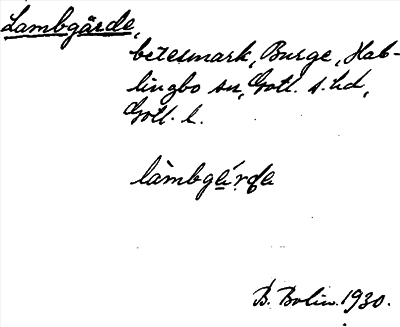 Lambgärde,
betesmark, Burge, Hab-
lingbo sn, Gotl. s. hd,
Gotl. l.
làmbgä́rdɐ
B. Bolin. 1930.